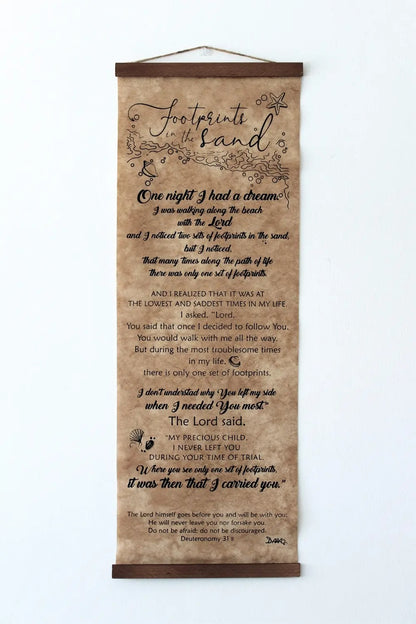 Footprints
in the sand
One night I had a dream.
I was walking along the beach
with the Lord
and I noticed two sets of footprints in the sand,
but I noticed,
that many times along the path of life
there was only one set of footprints.
AND I REALIZED THAT IT WAS AT
THE LOWEST AND SADDEST TIMES IN MY LIFE.
I asked, "Lord,
You said that once I decided to follow You.
You would walk with me all the way.
But during the most troublesome times
in my life,
there is only one set of footprints.
I don't understad why You left my side
when I needed You most."
The Lord said.
"MY PRECIOUS CHILD,
I NEVER LEFT YOU
DURING YOUR TIME OF TRIAL.
Where you see only one set of footprints,
it was then that I carried you."
The Lord himself goes before you and will be with you;
He will never leave you nor forsake you.
Do not be afraid; do not be discouraged.
Deuteronomy 31:8